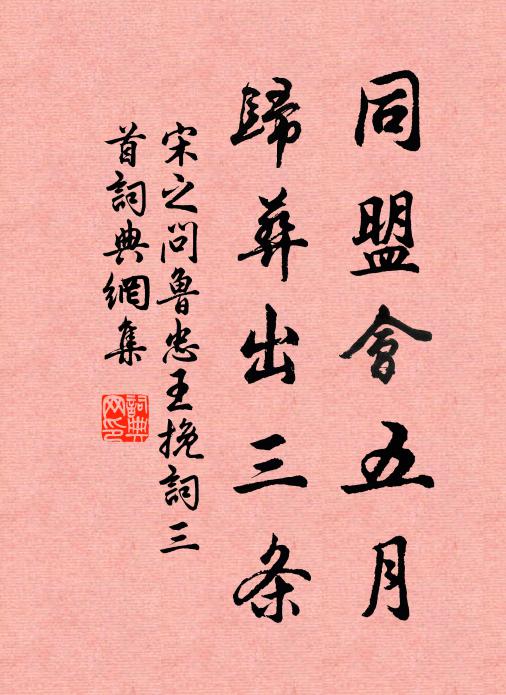 同盟會五月
歸葬出三条
宋之问鲁忠王挽詞三
首詞典網集
詞典
网印